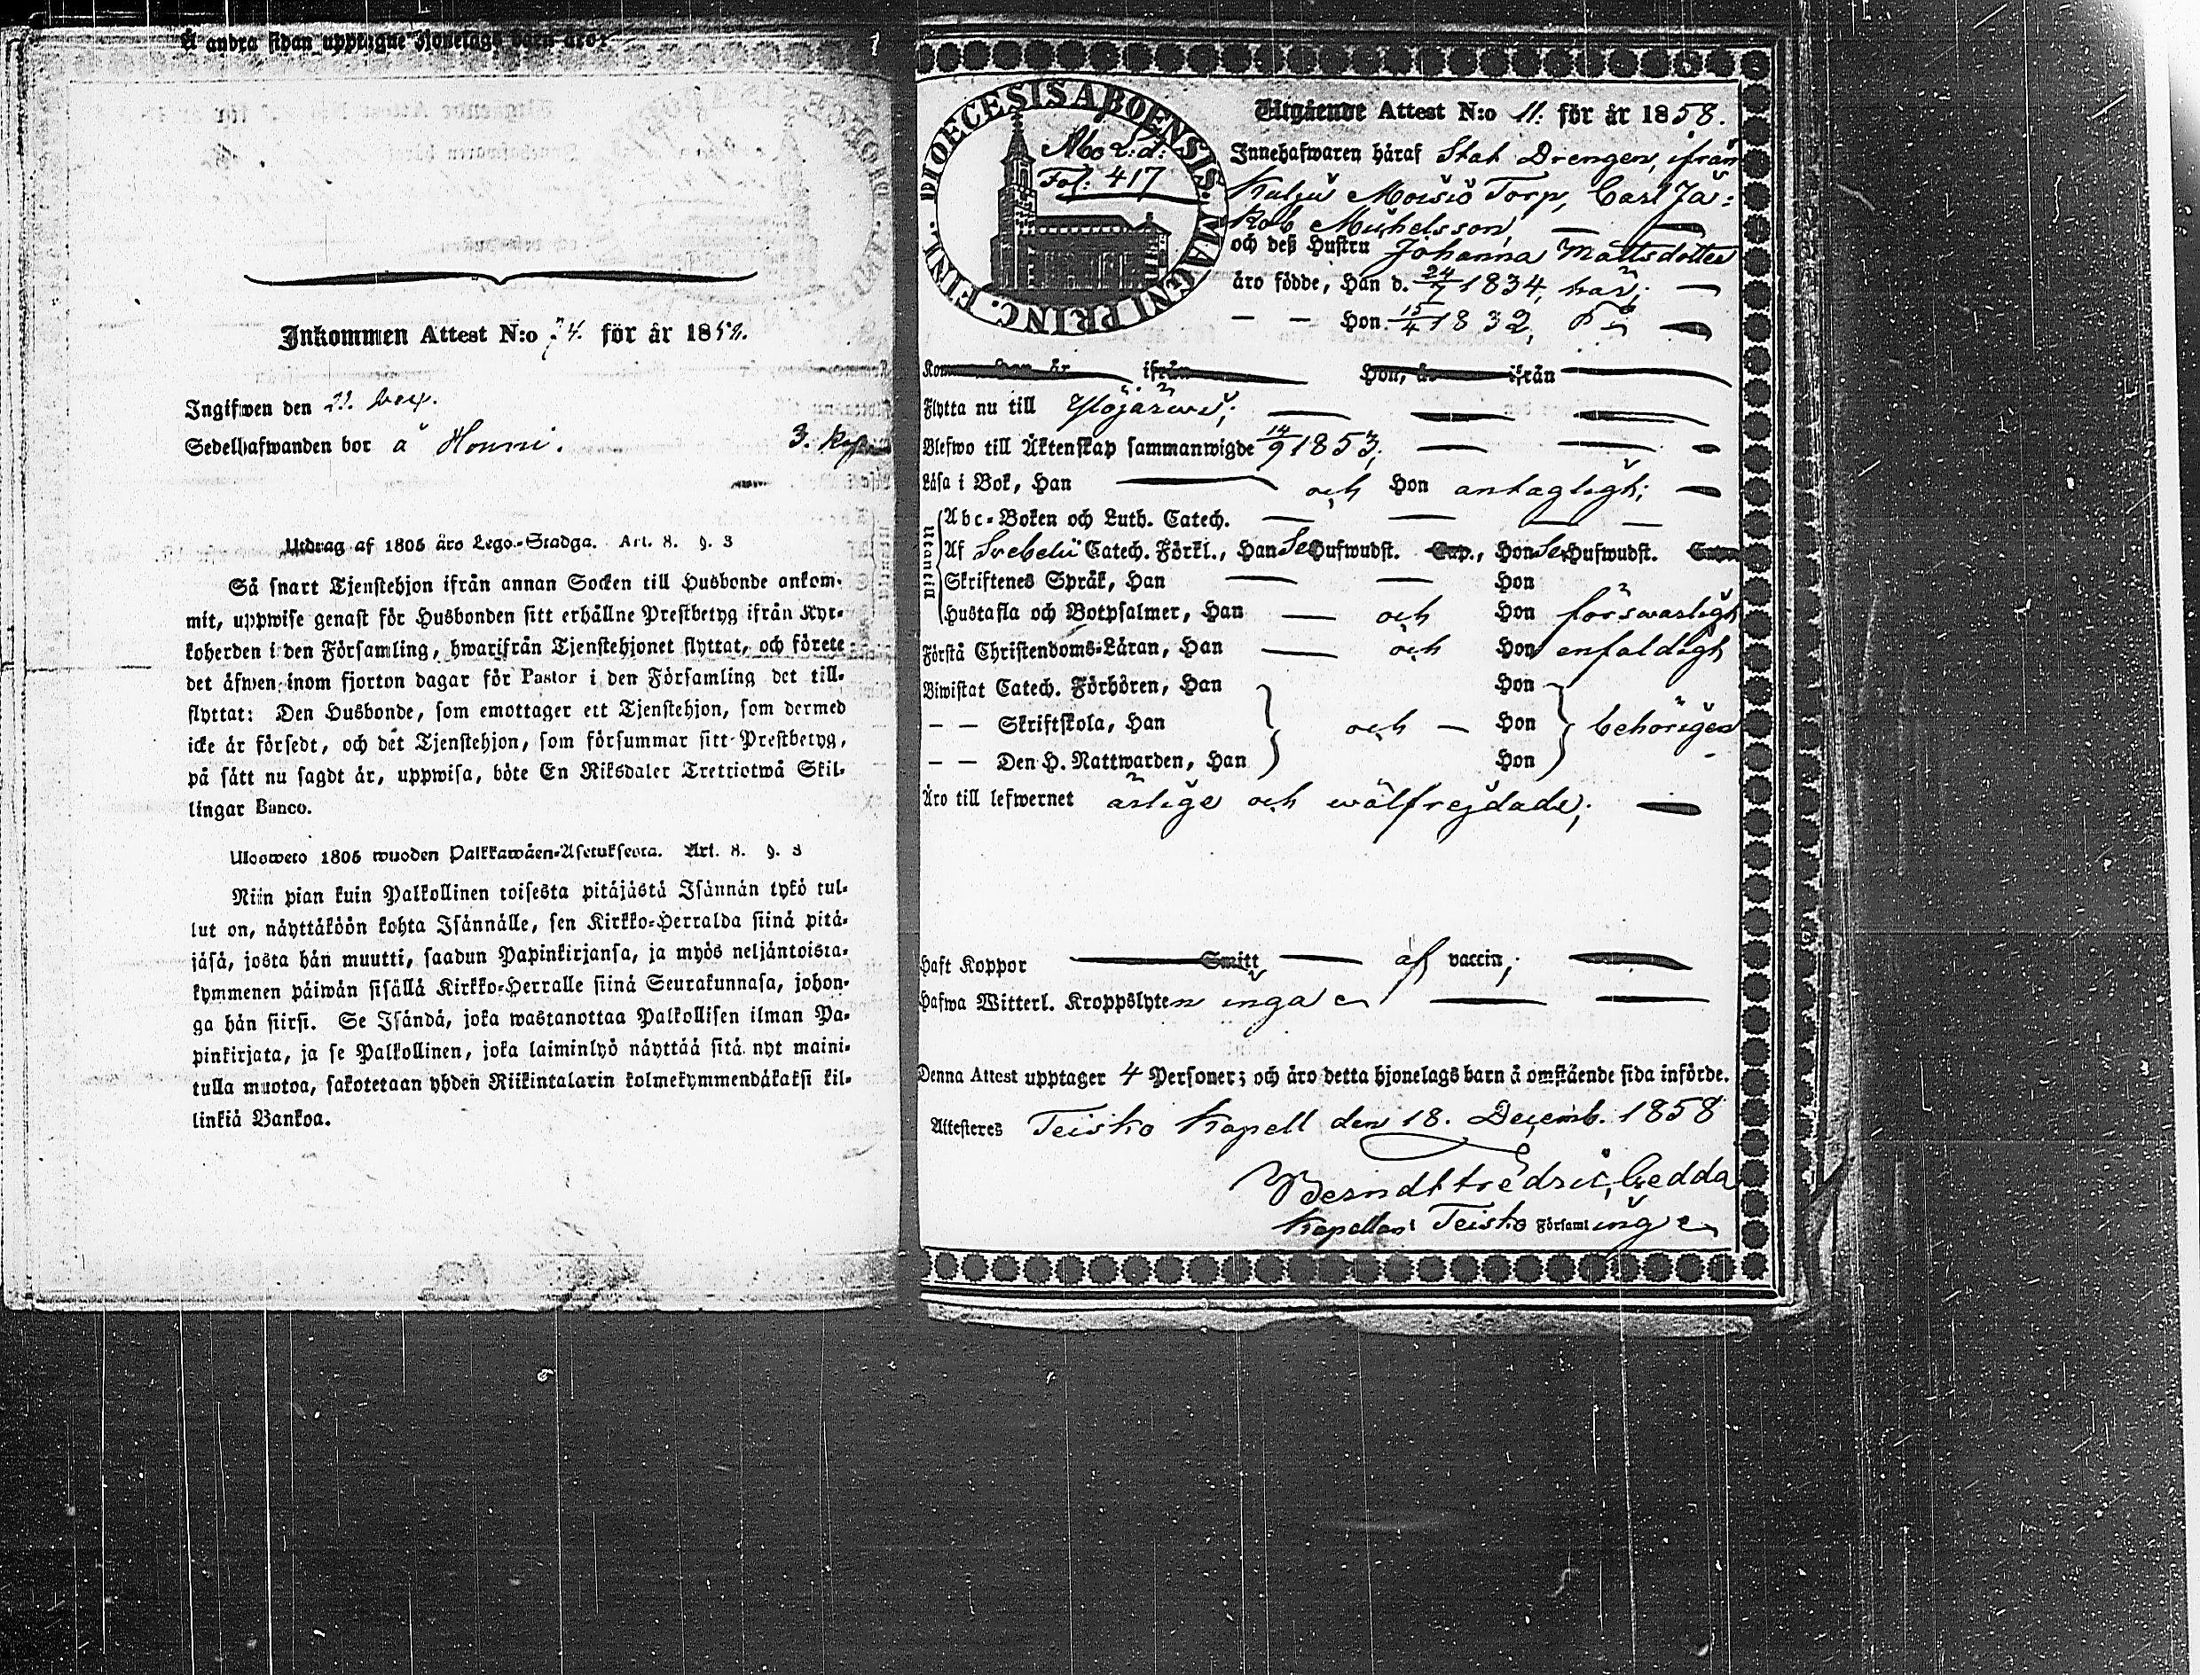 Å andra sidan upptagne Hjonelags barn äro:
Inkommen Attest N:o 74. för år 1858.
Ingifwen den 22. Dec.
Sedelhafwanden bor å Honni.
3. Kop
Utdrag af 1805 års Lego-Stadga. Art. 8. §. 3
Så snart Tjenstehjon ifrån annan Socken till Husbonde ankom-
mit, uppwise genast för Husbonden sitt erhållne Prestbetyg ifrån Kyr-
koherden i den Församling, hwarifrån Tjenstehjonet flyttat, och förete
det äfwen inom fjorton dagar för Pastor i den Församling det till-
flyttat: Den Husbonde, som emottager ett Tjenstehjon, som dermed
icke är försedt, och det Tjenstehjon, som försummar sitt Prestbetyg,
på sätt nu sagdt är, uppwisa, böte En Riksdaler Trettiotwå Skil-
lingar Banco.
Ulosweto 1805 wuoden Palkkawäen-Asetuksesta. Art. 8. §. 3
Niin pian kuin Palkollinen toisesta pitäjästä Isännän tykö tul-
lut on, näyttäköön kohta Isännälle, sen Kirkko-Herralda siinä pitä-
jäsä, josta hän muutti, saadun Papinkirjansa, ja myös neljäntoista-
kymmenen päiwän sisällä Kirkko-Herralle siinä Seurakunnasa, johon-
ga hän siirsi. Se Isändä, joka wastanottaa Palkollisen ilman Pa-
pinkirjata, ja se Palkollinen, joka laiminlyö näyttää sitä nyt maini-
tulla muotoa, sakotetaan yhden Riikintalarin kolmekymmendäkaksi kil-
linkiä Bankoa.
DIOECESIS ABOENSIS. MAGNI PRINC. FINL.
Fol: 417
Utgående Attest N:o 11. för år 1858.
Innehafwaren häraf Stat Drengen, ifrån
Kulju Moisio Torp, Carl Ja=
kob Michelsson,
och deß Hustru Johanna Mattsdotter
äro födde, Han d. 24/7 1834, här;
— — Hon. 15/4 1832,
Kommen Han år ifrån Hon, år ifrån
Flytta nu till Ylöjärwi;
Blefwo till Äktenskap sammanwigde 14/9 1853;
Läsa i Bok, Han — och Hon antagligt;
Utantill
Abc-Boken och Luth. Catech.
Af Svebelii Catech. Förkl., Han Se Hufwudst. Cap., Hon Se Hufwudst. Cap.
Skriftenes Språk, Han — — Hon
Hustafla och Botpsalmer, Han — och Hon förswarligt
Förstå Christendoms-Läran, Han — och Hon enfaldigt
Biwistat Catech. Förhören, Han Hon
— — Skriftskola, Han och — Hon behörigen
— — Den H. Nattwarden, Han Hon
Äro till lefwernet ärlige och wälfrejdade;
Haft Koppor Smitt — af vaccin;
Hafwa Witterl. Kroppslyten inga
Denna Attest upptager 4 Personer; och äro detta hjonelags barn å omstående sida införde.
Attesteres Teisko Kapell den 18. Decemb. 1858
Berndt Fredric Gedda
Kapellan i Teisko Församling